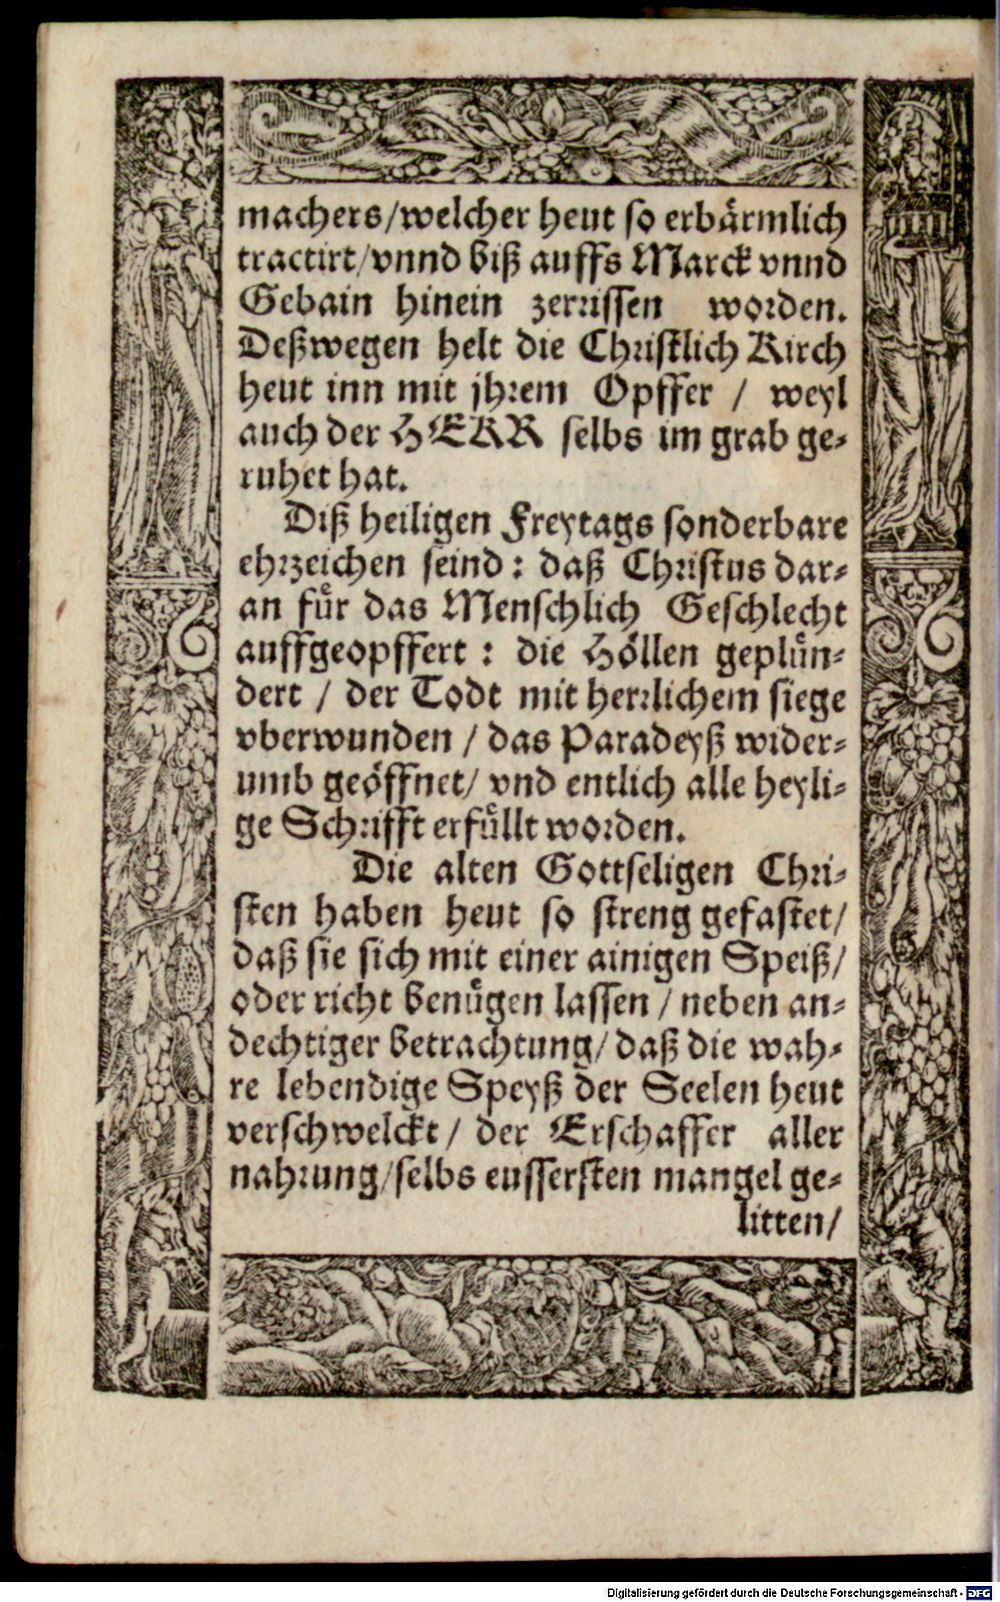 machers/welcher heut so erbärmlich
tractirt/vnnd biß auffs Marck vnnd
Gebain hinein zerrissen worden.
Deßwegen helt die Christlich Kirch
heut inn mit jhrem Opffer / weyl
auch der HERR selbs im grab ge-
ruhet hat.
Diß heiligen Freytags sonderbare
ehrzeichen seind: daß Christus dar-
an für das Menschlich Geschlecht
auffgeopffert: die Höllen geplün-
dert / der Todt mit herrlichem siege
vberwunden / das Paradeyß wider-
umb geöffnet/ vnd entlich alle heyli-
ge Schrifft erfüllt worden.
Die alten Gottseligen Chri-
sten haben heut so streng gefastet/
daß sie sich mit einer ainigen Speiß/
oder richt benügen lassen / neben an-
dechtiger betrachtung/ daß die wah-
re lebendige Speyß der Seelen heut
verschwelckt / der Erschaffer aller
nahrung/selbs eussersten mangel ge-
litten/
Digitalisierung gefördert durch die Deutsche Forschungsgemeinschaft - DFG